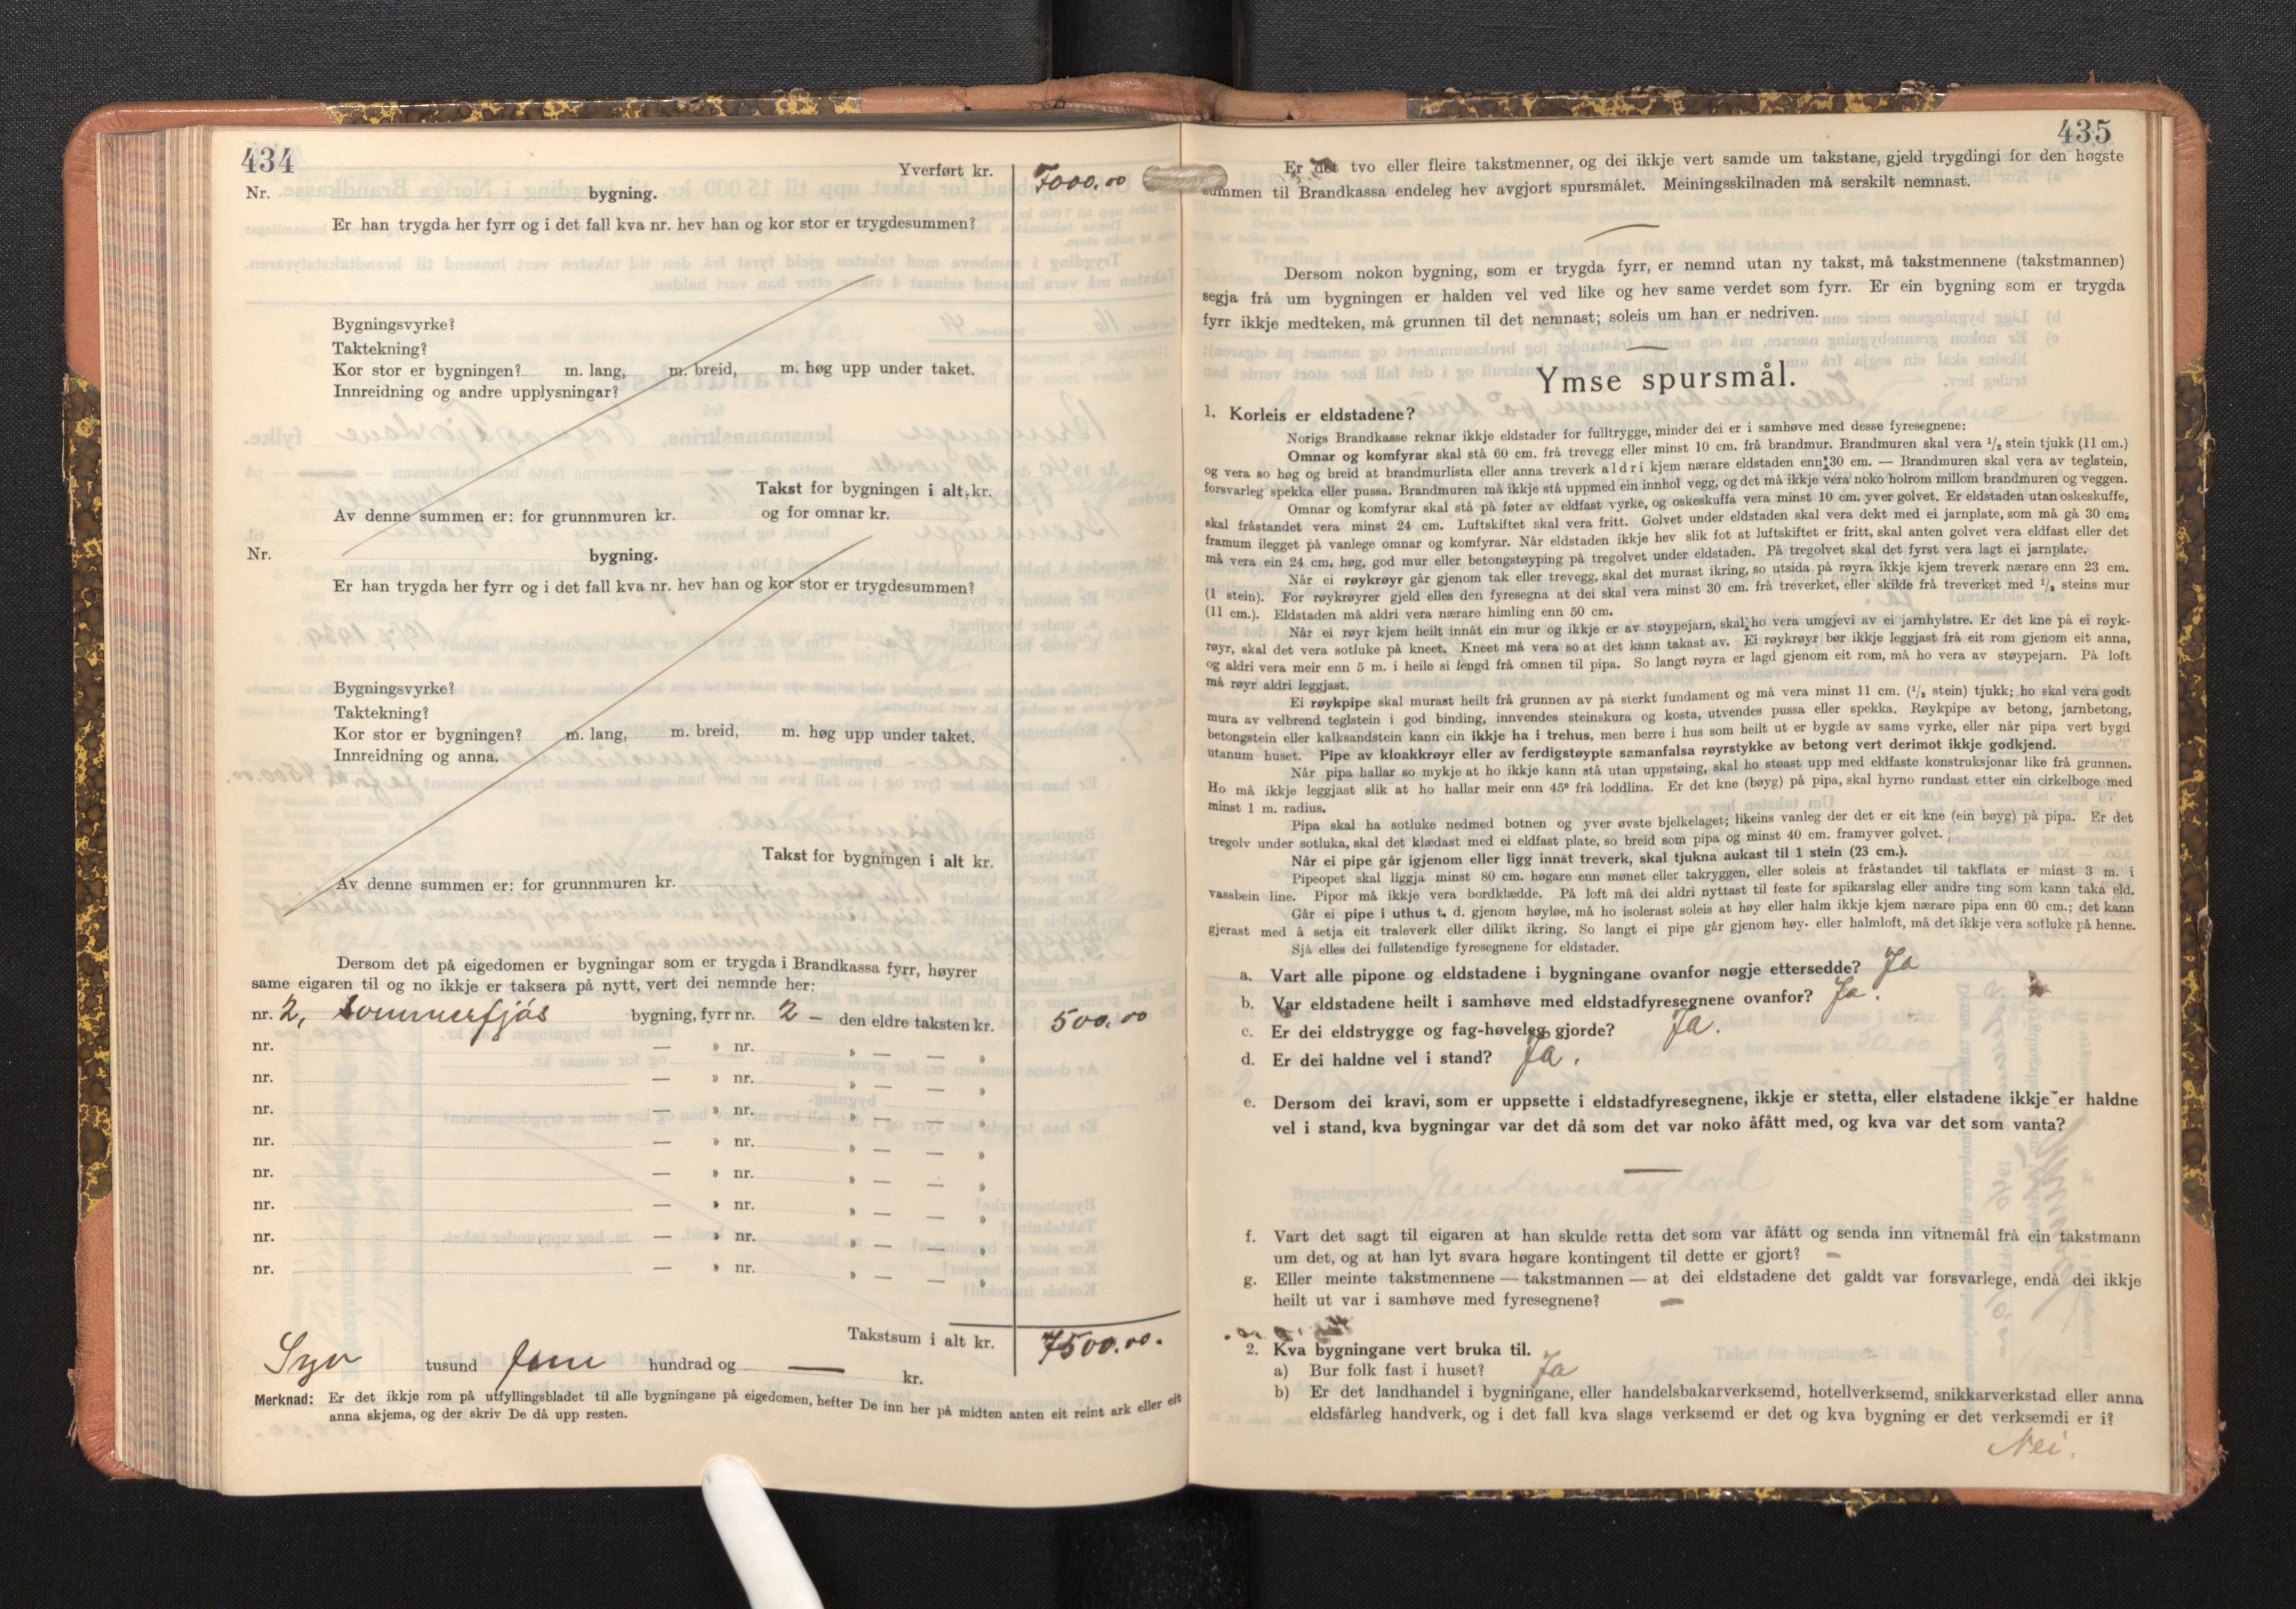 434
Yverført kr. 7000.00
Nr. bygning.
Er han trygda her fyrr og i det fall kva nr. hev han og kor stor er trygdesummen?
Bygningsvyrke?
Taktekning?
Kor stor er bygningen? m. lang, m. breid, m. høg upp under taket.
Innreidning og andre upplysningar?
Takst for bygningen i alt, kr.
Av denne summen er: for grunnmuren kr. og for omnar kr.
Nr. bygning.
Er han trygda her fyrr og i det fall kva nr. hev han og kor stor er trygdesummen?
Bygningsvyrke?
Taktekning?
Kor stor er bygningen? m. lang, m. breid, m. høg upp under taket.
Innreidning og anna.
Takst for bygningen i alt kr.
Av denne summen er: for grunnmuren kr.
Dersom det på eigedomen er bygningar som er trygda i Brandkassa fyrr, høyrer
same eigaren til og no ikkje er taksera på nytt, vert dei nemnde her:
nr. 2, Sommerfjøs bygning, fyrr nr. 2 — den eldre taksten kr. 500.00
nr. — » nr. » — — »
nr. — » nr. » — — »
nr. — » nr. » — — »
nr. — » nr. » — — »
nr. — » nr. » — — »
nr. — » nr. » — — »
nr. — » nr. » — — »
nr. — » nr. » — — »
Takstsum i alt kr. 7500.00.
Syv tusund fem hundrad og — kr.
Merknad: Er det ikkje rom på utfyllingsbladet til alle bygningane på eigedomen, hefter De inn her på midten anten eit reint ark eller eit
anna skjema, og der skriv De då upp resten.
435
Er det tvo eller fleire takstmenner, og dei ikkje vert samde um takstane, gjeld trygdingi for den høgste
summen til Brandkassa endeleg hev avgjort spursmålet. Meiningsskilnaden må serskilt nemnast.
Dersom nokon bygning, som er trygda fyrr, er nemnd utan ny takst, må takstmennene (takstmannen)
segja frå um bygningen er halden vel ved like og hev same verdet som fyrr. Er ein bygning som er trygda
fyrr ikkje medteken, må grunnen til det nemnast; soleis um han er nedriven.
Ymse spursmål.
1. Korleis er eldstadene?
Norigs Brandkasse reknar ikkje eldstader for fulltrygge, minder dei er i samhøve med desse fyresegnene:
Omnar og komfyrar skal stå 60 cm. frå trevegg eller minst 10 cm. frå brandmur. Brandmuren skal vera 1/2 stein tjukk (11 cm.)
og vera so høg og breid at brandmurlista eller anna treverk aldri kjem nærare eldstaden enn 30 cm. — Brandmuren skal vera av teglstein,
forsvarleg spekka eller pussa. Brandmuren må ikkje stå uppmed ein innhol vegg, og det må ikkje vera noko holrom millom brandmuren og veggen.
Omnar og komfyrar skal stå på føter av eldfast vyrke, og oskeskuffa vera minst 10 cm. yver golvet. Er eldstaden utan oskeskuffe,
skal fråstandet vera minst 24 cm. Luftskiftet skal vera fritt. Golvet under eldstaden skal vera dekt med ei jarnplate, som må gå 30 cm.
framum ilegget på vanlege omnar og komfyrar. Når eldstaden ikkje hev slik fot at luftskiftet er fritt, skal anten golvet vera eldfast eller det
må vera ein 24 cm. høg, god mur eller betongstøyping på tregolvet under eldstaden. På tregolvet skal det fyrst vera lagt ei jarnplate.
Når ei røykrøyr går gjenom tak eller trevegg, skal det murast ikring, so utsida på røyra ikkje kjem treverk nærare enn 23 cm.
(1 stein). For røykrøyrer gjeld elles den fyresegna at dei skal vera minst 30 cm. frå treverket, eller skilde frå treverket med 1/2 steins mur
(11 cm.). Eldstaden må aldri vera nærare himling enn 50 cm.
Når ei røyr kjem heilt innåt ein mur og ikkje er av støypejarn, skal ho vera umgjevi av ei jarnhylstre. Er det kne på ei røyk-
røyr, skal det vera sotluke på kneet. Kneet må vera so at det kann takast av. Ei røykrøyr bør ikkje leggjast frå eit rom gjenom eit anna,
og aldri vera meir enn 5 m. i heile si lengd frå omnen til pipa. So langt røyra er lagd gjenom eit rom, må ho vera av støypejarn. På loft
må røyr aldri leggjast.
Ei røykpipe skal murast heilt frå grunnen av på sterkt fundament og må vera minst 11 cm. (1/2 stein) tjukk; ho skal vera godt
mura av velbrend teglstein i god binding, innvendes steinskura og kosta, utvendes pussa eller spekka. Røykpipe av betong, jarnbetong,
betongstein eller kalksandstein kann ein ikkje ha i trehus, men berre i hus som heilt ut er bygde av same vyrke, eller når pipa vert bygd
utanum huset. Pipe av kloakkrøyr eller av ferdigstøypte samanfalsa røyrstykke av betong vert derimot ikkje godkjend.
Når pipa hallar so mykje at ho ikkje kann stå utan uppstøing, skal ho støast upp med eldfaste konstruksjonar like frå grunnen.
Ho må ikkje leggjast slik at ho hallar meir enn 45° frå loddlina. Er det kne (bøyg) på pipa, skal hyrno rundast etter ein cirkelboge med
minst 1 m. radius.
Pipa skal ha sotluke nedmed botnen og yver øvste bjelkelaget; likeins vanleg der det er eit kne (ein bøyg) på pipa. Er det
tregolv under sotluka, skal det klædast med ei eldfast plate, so breid som pipa og minst 40 cm. framyver golvet.
Når ei pipe går igjenom eller ligg innåt treverk, skal tjukna aukast til 1 stein (23 cm.).
Pipeopet skal liggja minst 80 cm. høgare enn mønet eller takryggen, eller soleis at fråstandet til takflata er minst 3 m. i
vassbein line. Pipor må ikkje vera bordklædde. På loft må dei aldri nyttast til feste for spikarslag eller andre ting som kann taka eld.
Går ei pipe i uthus t. d. gjenom høyløe, må ho isolerast soleis at høy eller halm ikkje kjem nærare pipa enn 60 cm.; det kann
gjerast med å setja eit traleverk eller dilikt ikring. So langt ei pipe går gjenom høy- eller halmloft, må det ikkje vera sotluke på henne.
Sjå elles dei fullstendige fyresegnene for eldstader.
a. Vart alle pipone og eldstadene i bygningane ovanfor nøgje ettersedde? Ja
b. Var eldstadene heilt i samhøve med eldstadfyresegnene ovanfor? Ja.
c. Er dei eldstrygge og fag-høveleg gjorde? Ja.
d. Er dei haldne vel i stand? Ja.
e. Dersom dei kravi, som er uppsette i eldstadfyresegnene, ikkje er stetta, eller elstadene ikkje er haldne
vel i stand, kva bygningar var det då som det var noko åfått med, og kva var det som vanta?
f. Vart det sagt til eigaren at han skulde retta det som var åfått og senda inn vitnemål frå ein takstmann
um det, og at han lyt svara høgare kontingent til dette er gjort? —
g. Eller meinte takstmennene — takstmannen — at dei eldstadene det galdt var forsvarlege, endå dei ikkje
heilt ut var i samhøve med fyresegnene? —
2. Kva bygningane vert bruka til.
a) Bur folk fast i huset? Ja
b) Er det landhandel i bygningane, eller handelsbakarverksemd, hotellverksemd, snikkarverkstad eller anna
eldsfårleg handverk, og i det fall kva slags verksemd er det og kva bygning er det verksemdi er i?
Nei.